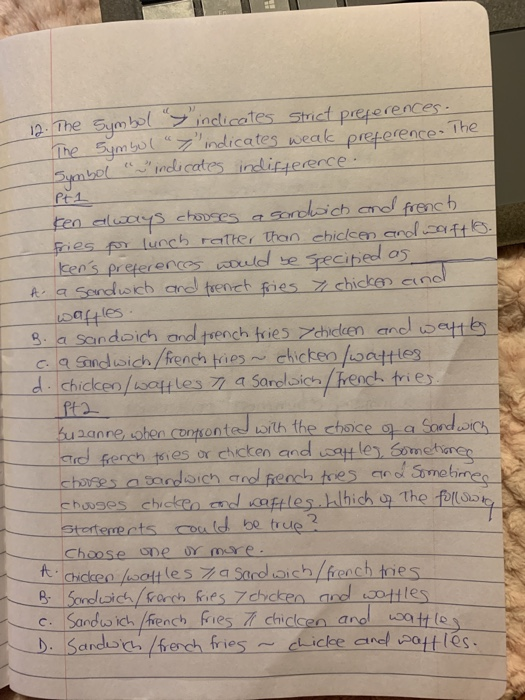 12. The Symbol "≻" indicates strict preferences.
The Symbol "≽" indicates weak preference. The
Symbol "~" indicates indifference.
Pt 1
Ken always chooses a sandwich and french
fries for lunch rather than chicken and waffles.
Ken's preferences would be specified as ____
A. a sandwich and french fries ≽ chicken and
waffles.
B. a sandwich and french fries ≻ chicken and waffles
C. a sandwich/french fries ~ chicken/waffles
d. chicken/waffles ≽ a Sandwich/french fries.
Pt 2
Suzanne, when confronted with the choice of a Sandwich
and french fries or chicken and waffles, Sometimes
chooses a sandwich and french fries and Sometimes
chooses chicken and waffles. Which of the following
statements could be true?
Choose one or more.
A. chicken/waffles ≽ a Sandwich/french fries
B. Sandwich/french fries ≻ chicken and waffles
C. Sandwich/french fries ≽ chicken and waffles
D. Sandwich/french fries ~ chicke and waffles.